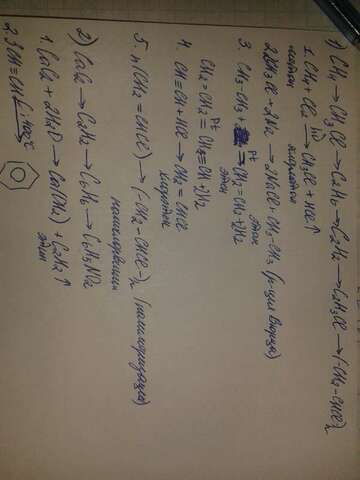 1) CH₄ → CH₃Cl → C₂H₆ → C₂H₂ → C₂H₃Cl → (-CH₂-CHCl-)n
1. CH₄ + Cl₂ —hν→ CH₃Cl + HCl↑
метан хлорметан
2. 2CH₃Cl + 2Na → 2NaCl + CH₃-CH₃ (р-ция Вюрца)
этан
3. CH₃-CH₃ + —Pt→ CH₂=CH₂+H₂
этен
CH₂=CH₂ —Pt→ CH≡CH+2H₂
4. CH≡CH + HCl → CH₂=CHCl
хлорэтен
5. n(CH₂=CHCl) → (-CH₂-CHCl-)n (полимеризация)
2) CaC₂ → C₂H₂ → C₆H₆ → C₆H₅NO₂
1. CaC₂ + 2H₂O → Ca(OH₂) + C₂H₂↑
этин
2. 3CH≡CH